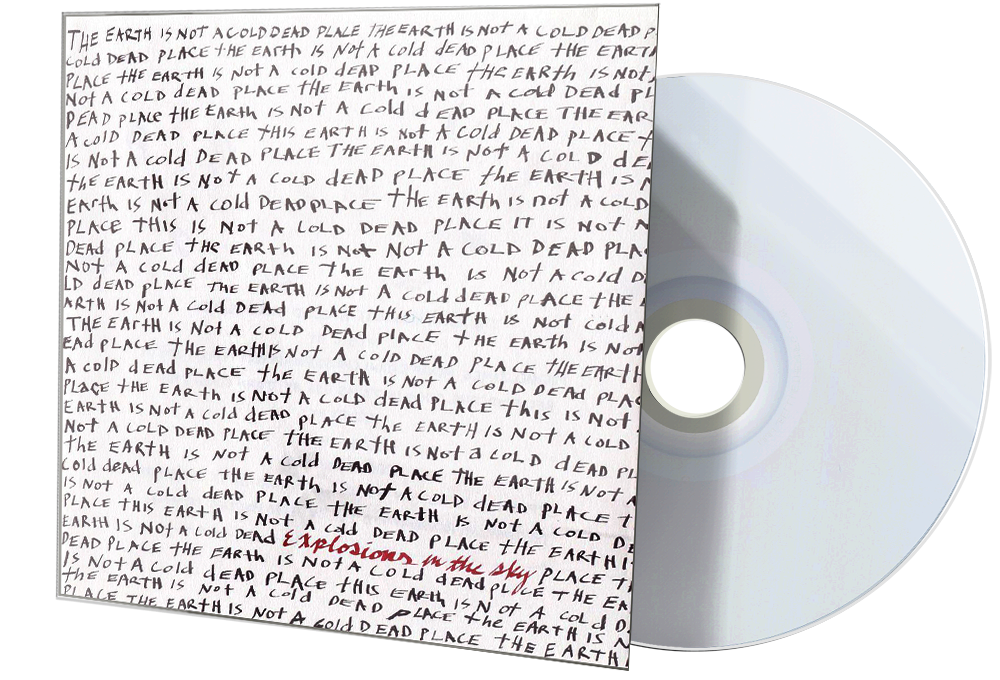 THE EARTH IS NOT A COLD DEAD PLACE THE EARTH IS NOT A COLD DEAD P
Cold DEAD PLACE THE EARTH IS NOT A Cold dEAD PLACE THE EARTH
PLACE THE EARTH IS NOT A COLD dEAD PLACE THE EARTH IS NOT
NOT A COLD dEAD PLACE THE EARTH IS NOT A COLD DEAD PL
DEAD PLACE THE EARTH IS NOT A Cold dEAD PLACE THE EAR
A COLD DEAD PLACE THIS EARTH IS NOT A Cold DEAD PLACE
IS NOT A cold DEAD PLACE THE EARTH IS NOT A COLD dE
the EARTH IS NOT A COLD dEAD PLACE the EARTH IS
EARTH IS NOT A COLD DEAD PLACE THE EARTH IS NOT A COLD
PLACE THIS IS NOT A COLD DEAD PLACE IT IS NOT A
DEAD PLACE THE EARTH IS NOT NOT A COLD DEAD PLA
NOT A COLD dEAD PLACE The EARTH IS NOT A Cold D
LD DEAD PLACE THE EARTH IS NOT A COLD dEAD PLACE THE
ARTH IS NOT A Cold DEAD PLACE THIS EARTH IS NOT COLD A
THE EARTH IS NOT A COLD DEAD PLACE THE EARTH IS NOT
EAD PLACE THE EARTH IS NOT A COLD DEAD PLACE THE EARTH
A COLD dEAD PLACE the EARTH IS NOT A COLD DEAD PLAC
PLACE THE EARTH IS NOT A COLD dEAD PLACE this IS NOT
EARTH IS NOT A Cold dEAD PLACE The EARTH IS NOT A COLD
NOT A COLD DEAD PLACE THE EARTH IS NOT a COLD dEAD PL
THE EARTH IS NOT A Cold DEAD PLACE THE EARTH IS NOT A
Cold dead PLACE THE EARTH IS NOT A COLD dEAD PLACE T
IS NOT A COLD dEAD PLACE THE EARTH IS NOT A COLD DE
PLACE THIS EARTH IS NOT A Cold DEAD PLACE THE EARTH I
EARTH IS NOT A Cold DEAD Explosions in the sky PLACE T
DEAD PLACE THE EARTH IS NOT A COLD dead PLACE THE EA
IS NOT A COLD dEAD PLACE THIS EARTH IS NOT A COLD D
the EARTH IS NOT A COLD DEAD PLACE the EARTH IS N
PLACE THE EARTH IS NOT A COLD DEAD PLACE THE EARTH